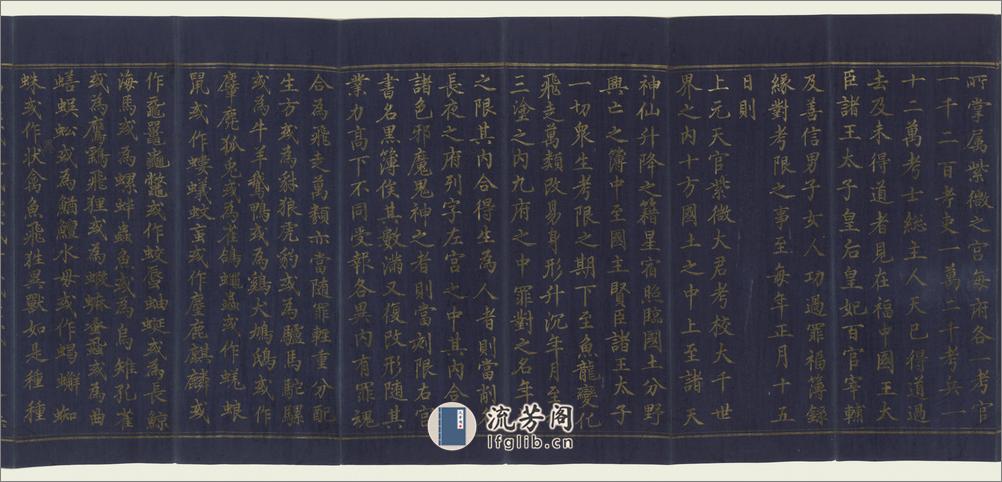 所掌属紫微之宫每府各一考官
一千二百考吏一萬二千考兵一
十二萬考士総主人天已得道過
去及未得道者見在福中國王大
臣諸王太子皇后皇妃百官宰輔
及善信男子女人功過罪福簿録
緣對考限之事至每年正月十五
日則
上元天官紫微大君考校大千世
界之内十方國土之中上至諸天
神仙升降之籍星宿照臨國土分野
興亡之簿中至國主賢臣諸王太子
一切衆生考限之期下至魚龍變化
飛走萬類改易身形升沉年月至
三塗之内九府之中罪對之名年
之限其内合得生為人者則當削
長夜之府列字左宫之中其内合
諸色邪魔鬼神之者則當刻限右宫
書名黒簿俟其數滿又復改形随其
業力高下不同受報各異内有罪魂
合為飛走萬類亦當随罪輕重分配
生方或為豺狼虎豹或為驢馬駝騾
或為牛羊鵝鴨或為鷄犬鳩鴟或作
麞麂狐兎或為雀鴿
鼠或作螻蟻蚊䖟或作麈鹿麒麟或
作黿鼉龜鱉或作蛟蜃蚰蜒或為長鯨
海馬或為螺蚌蟲魚或為烏雉孔雀
或為鷹鷂飛狸或為
蜈蚣或為水母或作
蛛或作状禽魚飛狌異獸如是種種
流芳阁
lfglib.cn